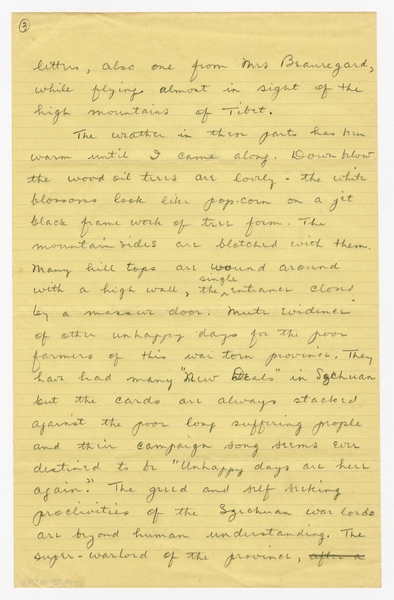 3
letters, also one from Mrs Beauregard,
while flying almost in sight of the
high mountains of Tibet.
The weather in these parts has been
warm until I came along. Down below
the wood oil trees are lovely - the white
blossoms look like pop-corn on a jet
black frame work of tree form. The
mountain sides are blotched with them.
Many hill tops are wound around
with a high wall, the single entrance closed
by a massive door. Mute evidence
of other unhappy days for the poor
farmers of this war torn province. They
have had many "New Deals" in Szechuan
but the cards are always stacked
against the poor long suffering people
and their campaign song seems ever
destined to be "Unhappy days are here
again." The greed and self seeking
proclivities of the Szechuan war lords
are beyond human understanding. The
super-warlord of the province, after a